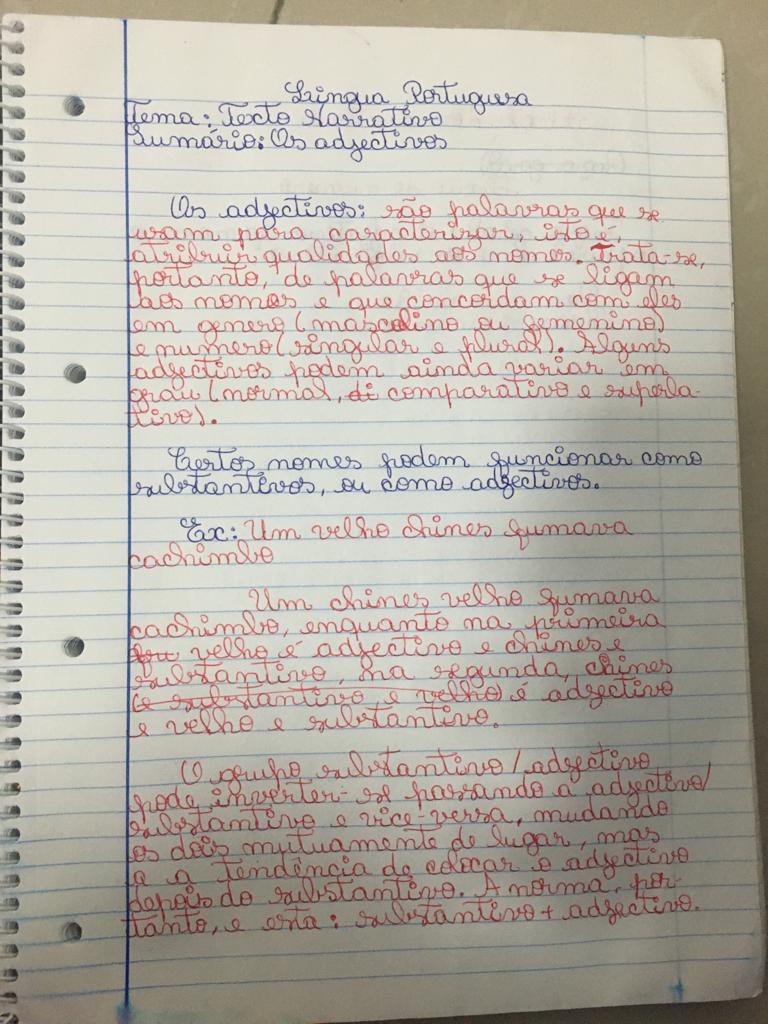 Língua Portuguesa
Tema: Texto Narrativo
Sumário: Os adjectivos
Os adjectivos: são palavras que se
usam para caracterizar, isto é,
atribuir qualidades aos nomes. Trata-se,
portanto, de palavras que se ligam
aos nomes e que concordam com eles
em genero (mascolino ou femenino)
e numero (singular e plural). Alguns
adjectivos podem ainda variar em
grau (normal, di comparativo e superla-
tivo).
Certos nomes podem funcionar como
substantivos, ou como adjectivos.
Ex: Um velho chines fumava
cachimbo
Um chines velho fumava
cachimbo, enquanto na primeira
velho é adjectivo e chines e
substantivo, na segunda, chines
(e substantivo e velho é adjectivo
e velho e substantivo.
O grupo substantivo/adjectivo
pode inverter-se passando a adjectivo/
substantivo e vice-versa, mudando
os dois mutuamente de lugar, mas
a tendência de colocar o adjectivo
depois do substantivo. A norma, por-
tanto, e esta: substantivo + adjectivo.